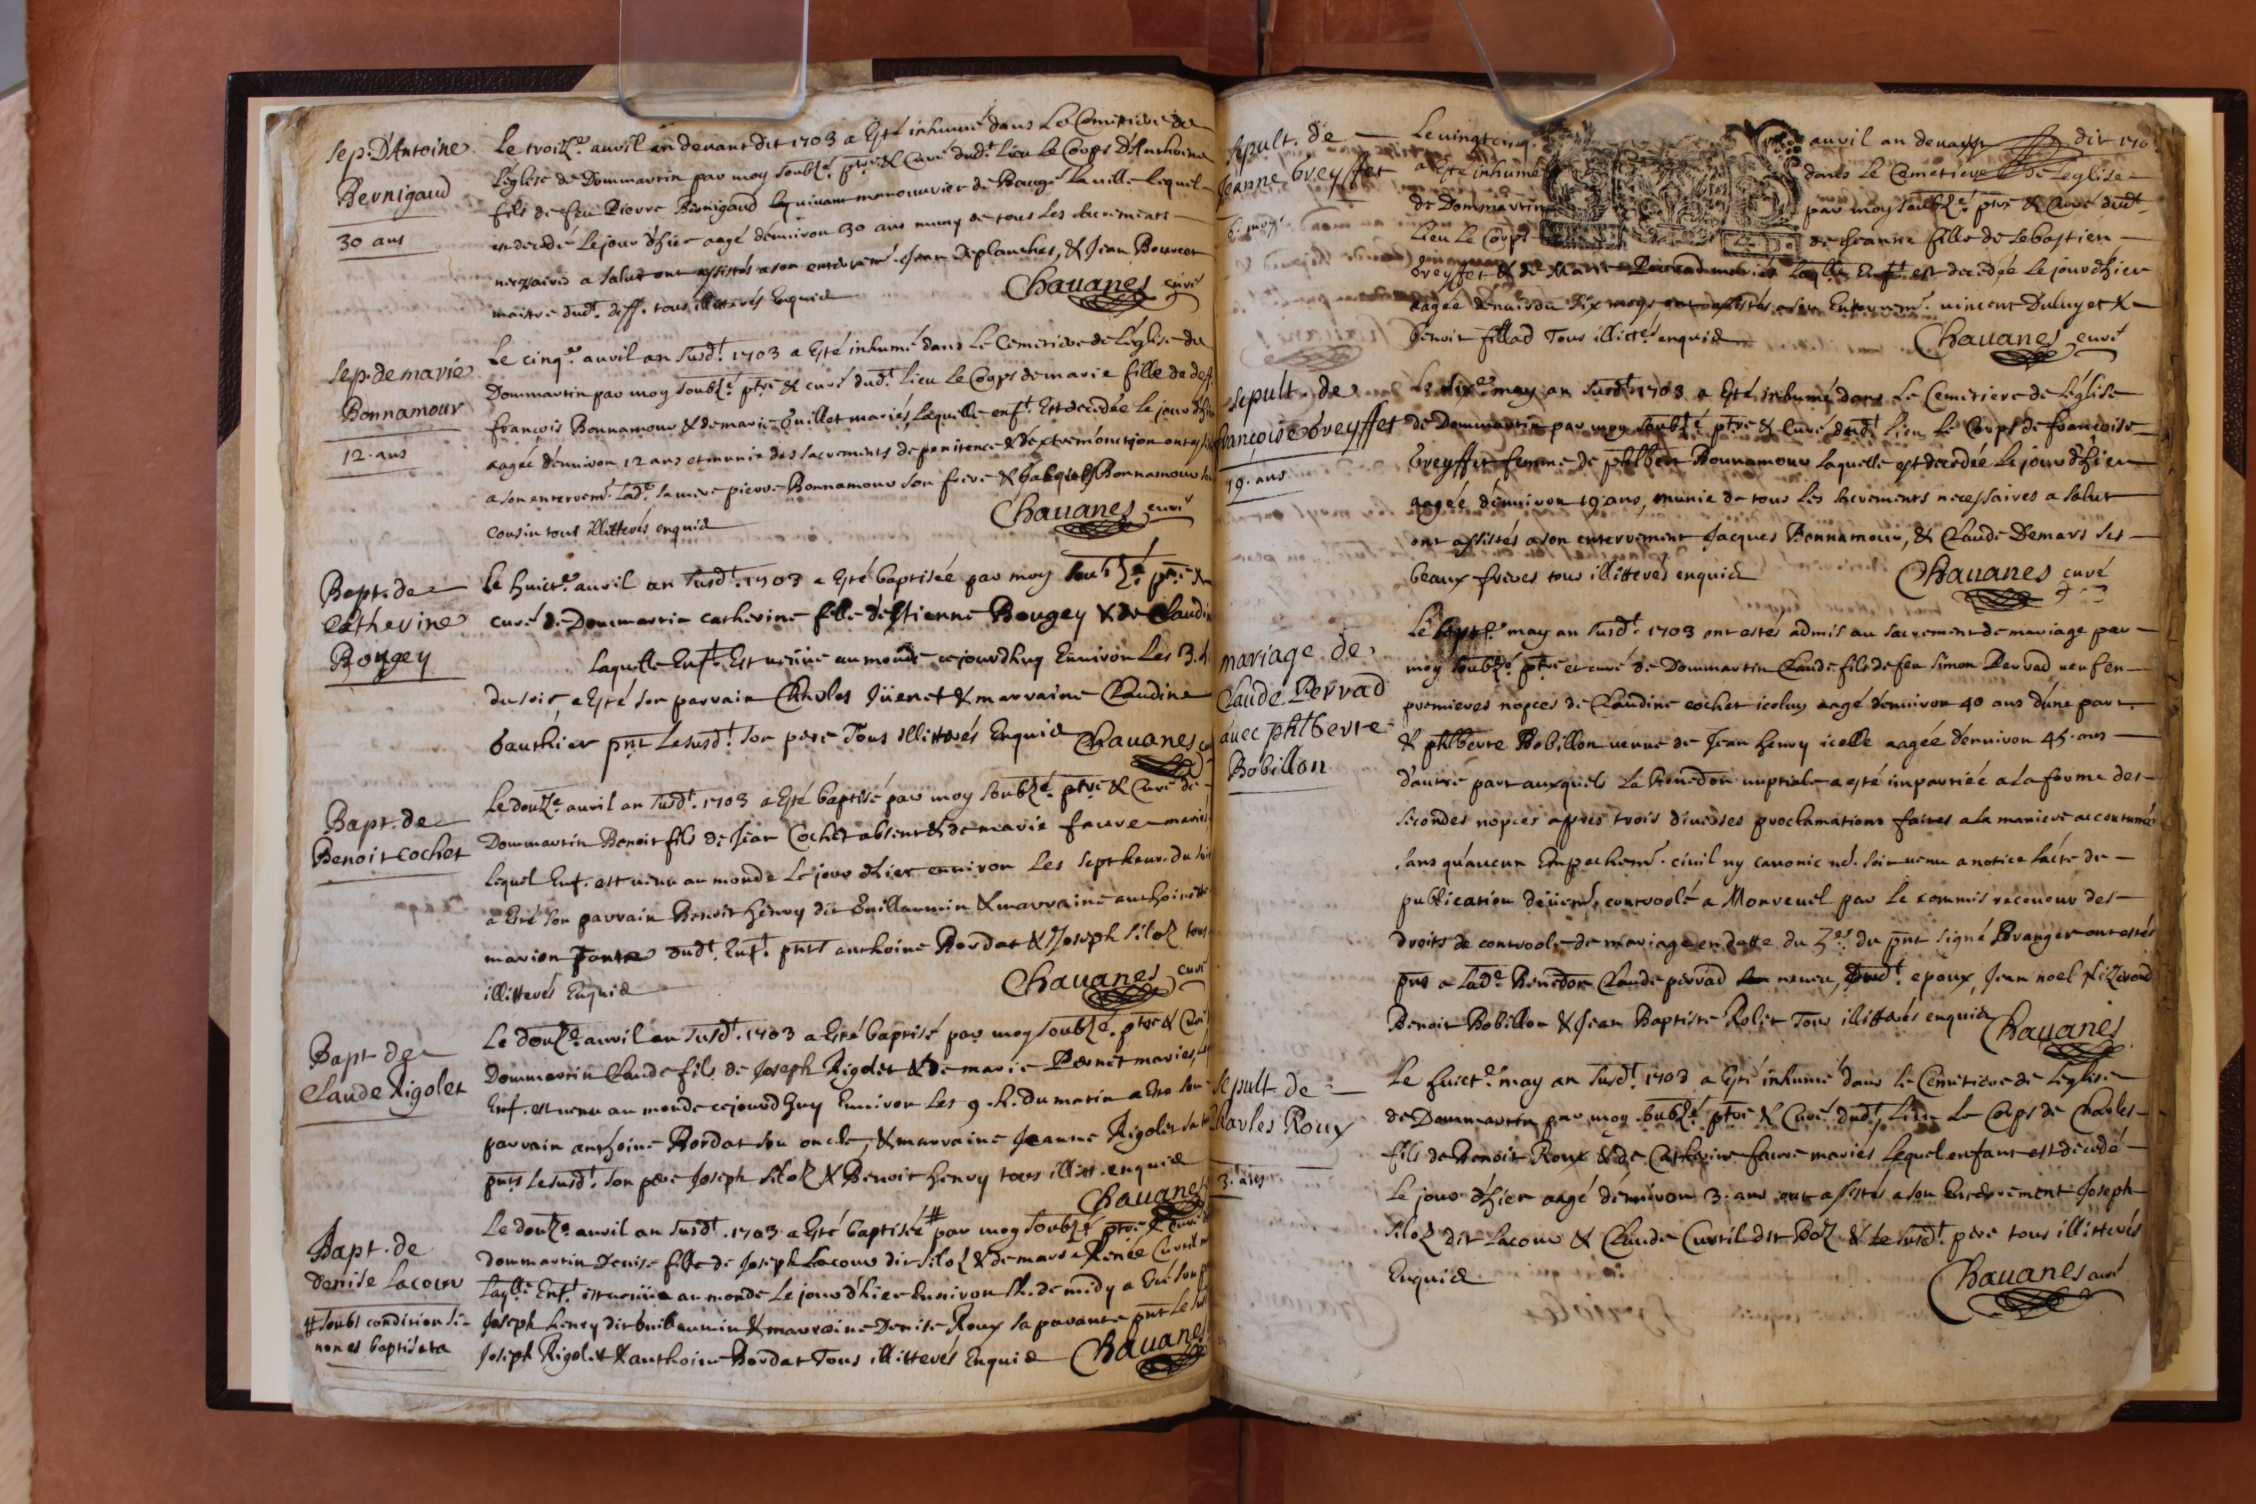 Sep. D'Antoine
Bernigaud
30 ans
Le troiz.e auril an deuant dit 1703 a Esté inhumé dans Le Cemetiere de
L'église de Dommartin par moy soubz.é ptre & Curé dud.t Lieu Le Corps d'Anthoine
fils de feu Pierre Bernigaud manouurier de Baugé La uille Lequel
est decedé Le jour d'hier aagé d'enuiron 30 ans muny de tous Les sacrements
necessaires a salut ont assistés a son enterrem.t Jean Deplanches, & Jean Bourcet
maitre dud.t deff. tous illitterés Enquis
Chauanes curé
Sep. de marie
Bonnamour
12. ans
Le cinq.e auril an susd.t 1703 a Esté inhumé dans Le Cemetiere de L'église de
Dommartin par moy soubz.é ptre & curé dud.t Lieu Le Corps de marie fille de deff.
françois Bonnamour & de marie Guillet mariés, Laquelle enf.t Est decedée Le jour d'hier
aagée d'enuiron 12 ans et munie des sacrements de penitence & d'extremonction ont
a son enterrem.t Lad.e sa mere pierre Bonnamour son frere & Bonnamour
cousin tous illitterés enquis
Chauanes curé
Bapt. de
Catherine
Bougey
Le huict.e auril an susd.t 1703 a Esté baptisée par moy soubz.é ptre &
curé de Dommartin catherine fille d'Estienne Bougey & de Claudine
Laquelle Enf.t Est uenüe au monde cejourd'huy Enuiron Les 3. h.
du soir, a Esté son parrain Charles Jüenet & marraine Claudine
Gauthier pnt Le susd.t son pere Tous illitterés Enquis Chauanes
Bapt. de
Benoit Cochet
Le douz.e auril an susd.t 1703 a Esté baptisé par moy soubz.é ptre & Curé de
Dommartin Benoit fils de Jean Cochet absent & de marie faure mariés
Lequel Enf. est uenu au monde Le jour d'hier enuiron Les sept heur. du soir
a Esté son parrain Benoit henry dit Guillaumin & marraine anthoinette
marion dud.t Enf.t pnts anthoine Bordat & Joseph siloz tous
illitterés Enquis
Chauanes curé
Bapt. de
Claude Rigolet
Le douz.e auril an susd.t 1703 a Esté baptisé par moy soubz.é ptre & Curé
Dommartin Claude fils de Joseph Rigolet & de marie Pernet mariés,
Enf. est uenu au monde cejourd'huy Enuiron Les 9. h. du matin a Esté son
parrain anthoine Bordat son oncle, & marraine Jeanne Rigolet
pnts Le susd.t son pere Joseph siloz & Benoit henry tous illitt. enquis
Chauanes
Bapt. de
Denise Lacour
# soubs condition si
non es baptisata
Le douz.e auril an susd.t 1703 a Esté baptisée # par moy soubz.é ptre & curé
dommartin Denise fille de Joseph Lacour dit siloz & de Renée Curtil
Laq.lle Enf.t est uenüe au monde Le jour d'hier Enuiron de midy a Esté son
Joseph henry dit Guillaumin & marraine Denise Roux sa parante pnt Le
Joseph Rigolet & anthoine Bordat Tous illitterés Enquis Chauanes
Sepult. de
Jeanne Greyffet
6. moys
Le uingt cinq auril an deuant dit 170
a Esté inhumé dans Le Cemetiere de Leglise
de Dommartin par moy soubz.é ptre & Curé dud.t
Lieu Le Corps de Jeanne fille de sebastien
Greyffet & de Marie mariés Laq.lle Enf.t est decedée Le jour d'hier
aagée d'enuiron six moys ont assistés a son Enterrem.t uincent Duluyet &
Benoit fillad Tous illitt.és enquis
Chauanes curé
Sepult. de
françoise Greyffet
19. ans
Le dix.e may an susd.t 1703 a Esté inhumé dans Le Cemetiere de L'église
de Dommartin par moy soubz.é ptre & Curé dud.t Lieu Le Corps de françoise
Greyffet femme de philbert Bonnamour Laquelle est decedée Le jour d'hier
aagée d'enuiron 19 ans, munie de tous Les sacrements necessaires a salut
ont assistés a son enterrement Jacques Bonnamour, & Claude Demars ses
beaux freres tous illitterés enquis
Chauanes curé
mariage de
Claude Perrad
auec philberte
Bobillon
Le may an susd.t 1703 ont estés admis au sacrement de mariage par
moy soubz.é ptre et curé de Dommartin Claude fils de feu simon Perrad ueuf en
premieres nopces de Claudine cochet iceluy aagé d'enuiron 40 ans d'une part
& philberte Bobillon ueuue de Jean henry icelle aagée d'enuiron 45. ans
d'autre part auxquels La benedon nuptiale a esté impartiée a La forme des
secondes nopces apres trois diuerses proclamations faites a La maniere accoutumée
sans qu'aucun Empechem.t ciuil ny canonic m'd. soit uenu a notice L'acte de
publication deüem.t controolé a Montreuil par Le commis receueur des
droits de controole de mariage en datte du 5.e du pnt signé Branger ont estés
pnts a Lad.e Benedon Claude perrad neueu, dud.t epoux, Jean noel
Benoit Bobillon & Jean Baptiste Rolet Tous illitterés enquis Chauanes
Sepult. de
Charles Roux
3. ans
Le huict.e may an susd.t 1703 a Esté inhumé dans Le Cemetiere de L'église
de Dommartin par moy soubz.é ptre & Curé dud.t Lieu Le Corps de Charles
fils de Benoit Roux & de Catherine faure mariés Lequel enfant est decedé
Le jour d'hier aagé d'enuiron 3. ans ont assistés a son Enterrement Joseph
siloz dit Lacour & Claude Curtil dit Boz & Le susd.t pere tous illitterés
Enquis
Chauanes curé